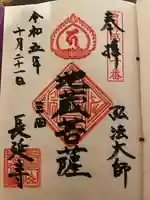 奉拝
弘法大師
地蔵菩薩
三田
長延寺
令和五年
十月二十一日